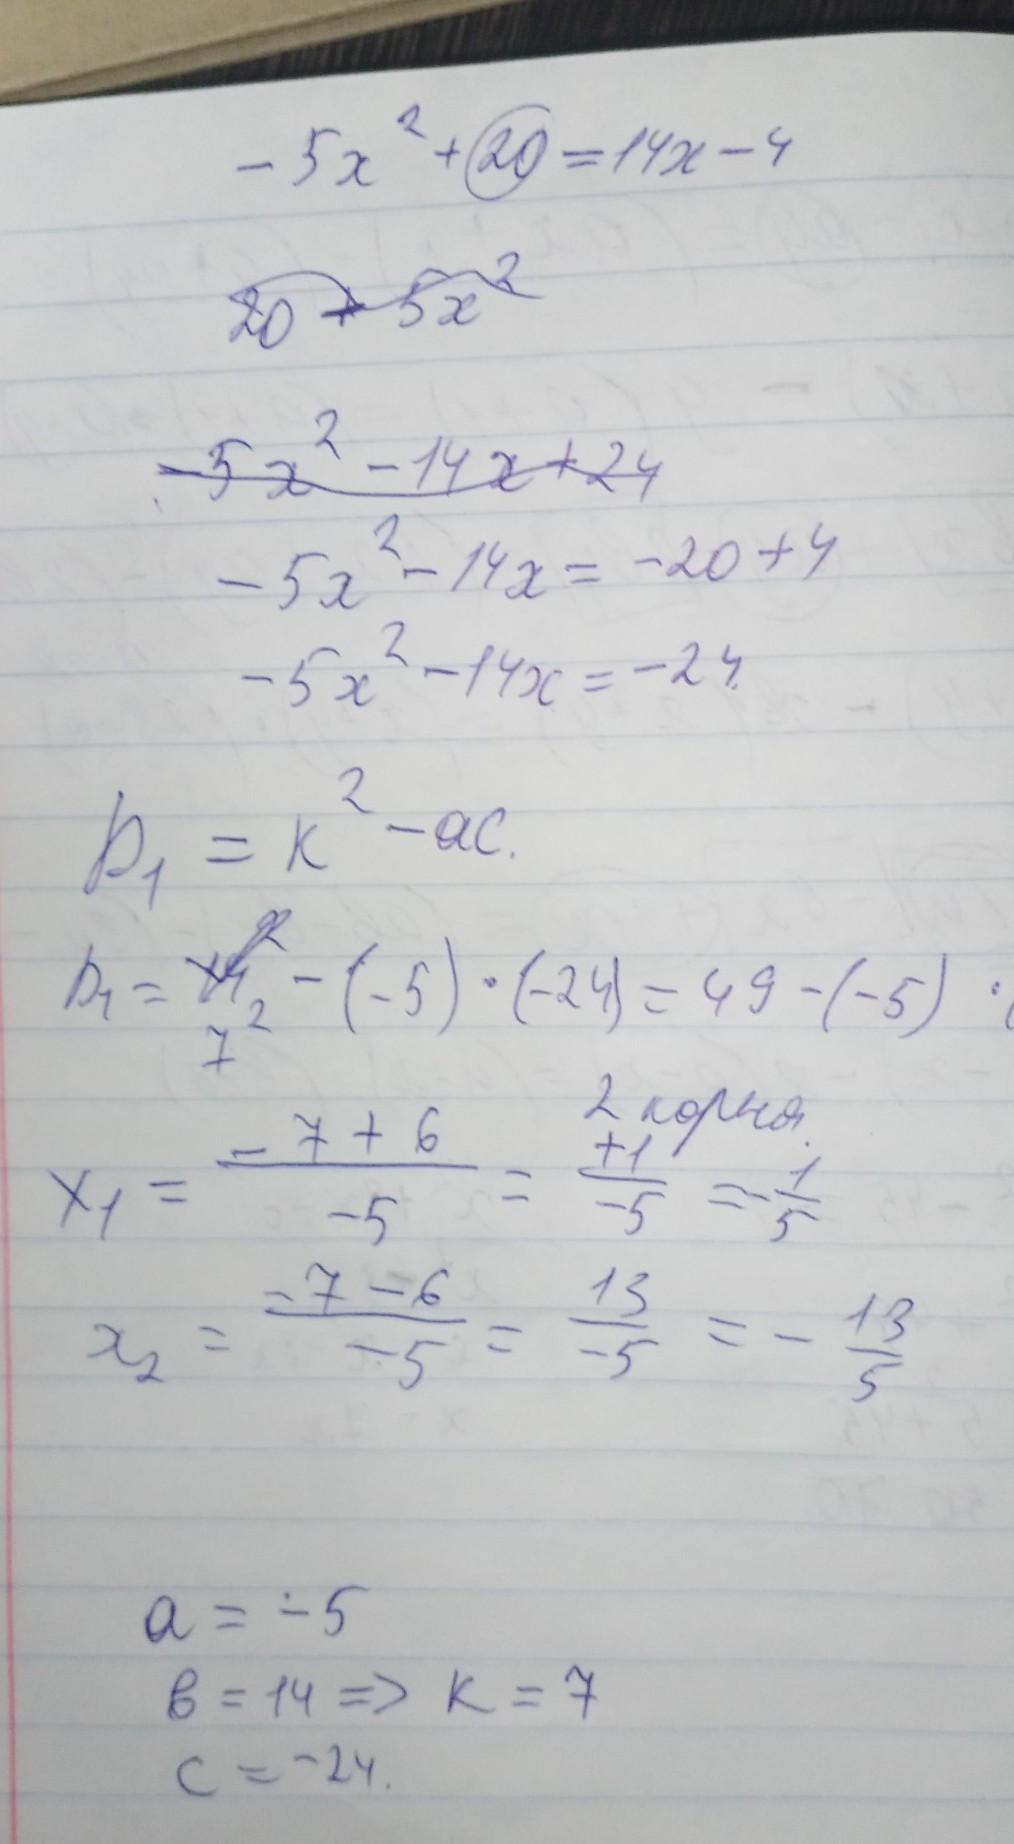 -5x² + 20 = 14x - 4
20 + 5x²
-5x² - 14x + 24
-5x² - 14x = -20 + 4
-5x² - 14x = -24.
D₁ = k² - ac.
D₁ = 14² - (-5) · (-24) = 49 - (-5) · (
7²
2 корня.
x₁ = -7 + 6 / -5 = +1 / -5 = -1/5
x₂ = -7 - 6 / -5 = 13 / -5 = - 13/5
a = -5
в = 14 => k = 7
c = -24.